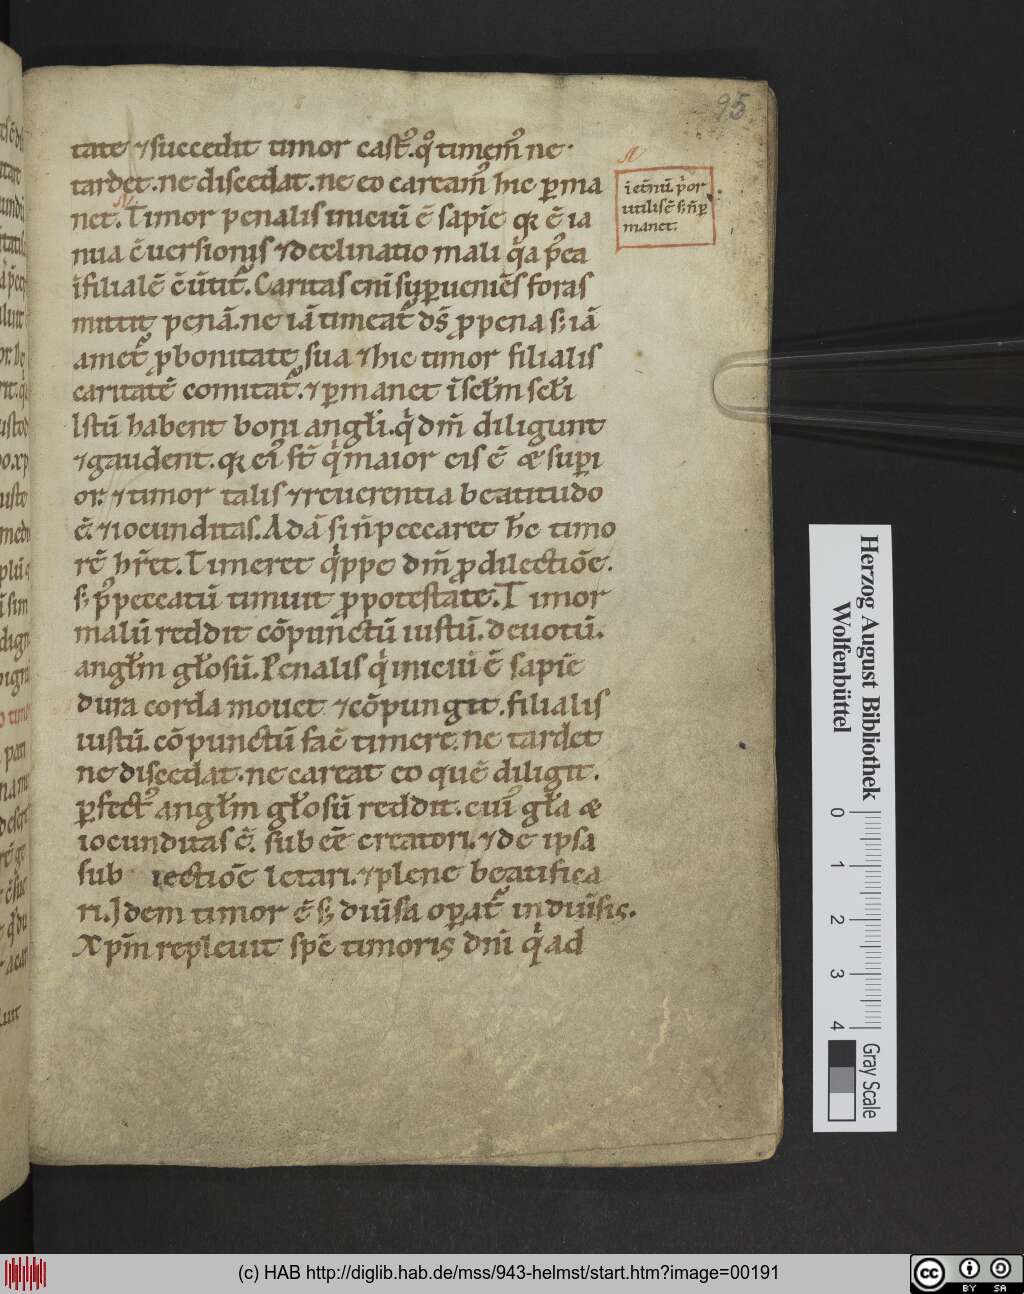 95
tate ⁊succedit timor cast᷒.q̊ timem᷒ ne
tardet.ne discedat.ne eo caream᷒ hic ꝑma
net. Timor penalis inicuī ē sapiē qꝛ ē ia
nua ꝯuersionis ⁊declinatio mali q̇a p᷒ea
ī filialē ꝯūtit᷒. Caritas enī suꝑueniēs foras
mittit penā.ne iā timeat᷒ ds̄ ꝓ pena s; iā
amet᷒ ꝓ bonitate sua ⁊hic timor filialis
caritatē comitat᷒.⁊ꝑmanet ī sełm sełi
Istū habent boni angłi.q̇ dm̄ diligunt
⁊gaudent.qꝛ ei᷒ st̄ q̇ maior eis ē æ supi
or.⁊timor talis ⁊reuerentia beatitudo
ē.⁊iocunditas.Adā si n̄ peccaret h̄c timo
rē hr̄et.Timeret q̇ppe dm̄ ꝓ dilectiōe.
s; p᷒ peccatū timuit ꝓ potestate.Timor
malū reddit cōpunctū iustū.deuotū.
angłm głosū.Penalis q̇ inicuī ē sapiē
dura corda mouet ⁊cōpungit.filialis
iustū cōpunctū facē timere.ne tardet
ne discedat.ne careat eo quē diligit.
ꝑfect᷒ angłm głosū reddit.cui᷒ gła æ
iocunditas ē. sub eē creatori.⁊de ipsa
sub iectiōe letari.⁊plene beatifica
ri.Idem timor ē s; diūsa oꝑat᷒ in diūsis.
Xpm̄ repleuit spē timoris dnī q̇ ad
ī et̄nū p᷒or
utilis ē s; n̄ ꝑ
manet.
Herzog August Bibliothek
Wolfenbüttel
0
1
2
3
4
Gray Scale
(c) HAB http://diglib.hab.de/mss/943-helmst/start.htm?image=00191
cc
BY SA